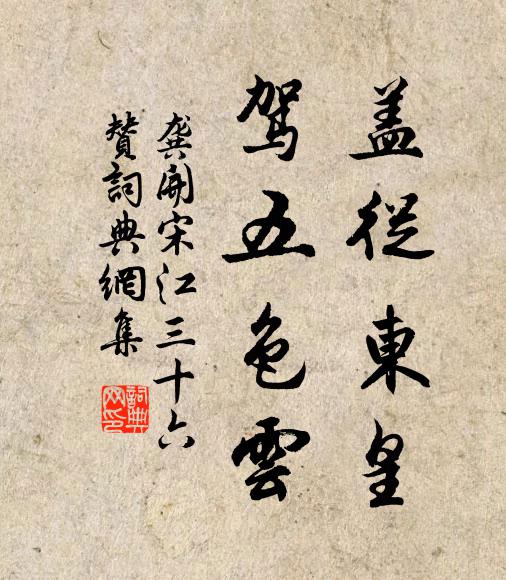 蓋從東皇
駕五色雲
龔開宋江三十六
贊詞典網集
詞典
网印